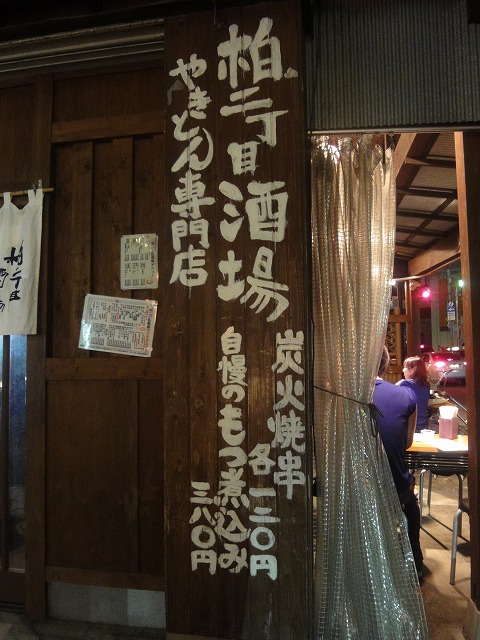 柏二丁目酒場
やきとん専門店
炭火焼串
各一二〇円
自慢のもつ煮込み
三八〇円
柏二丁目